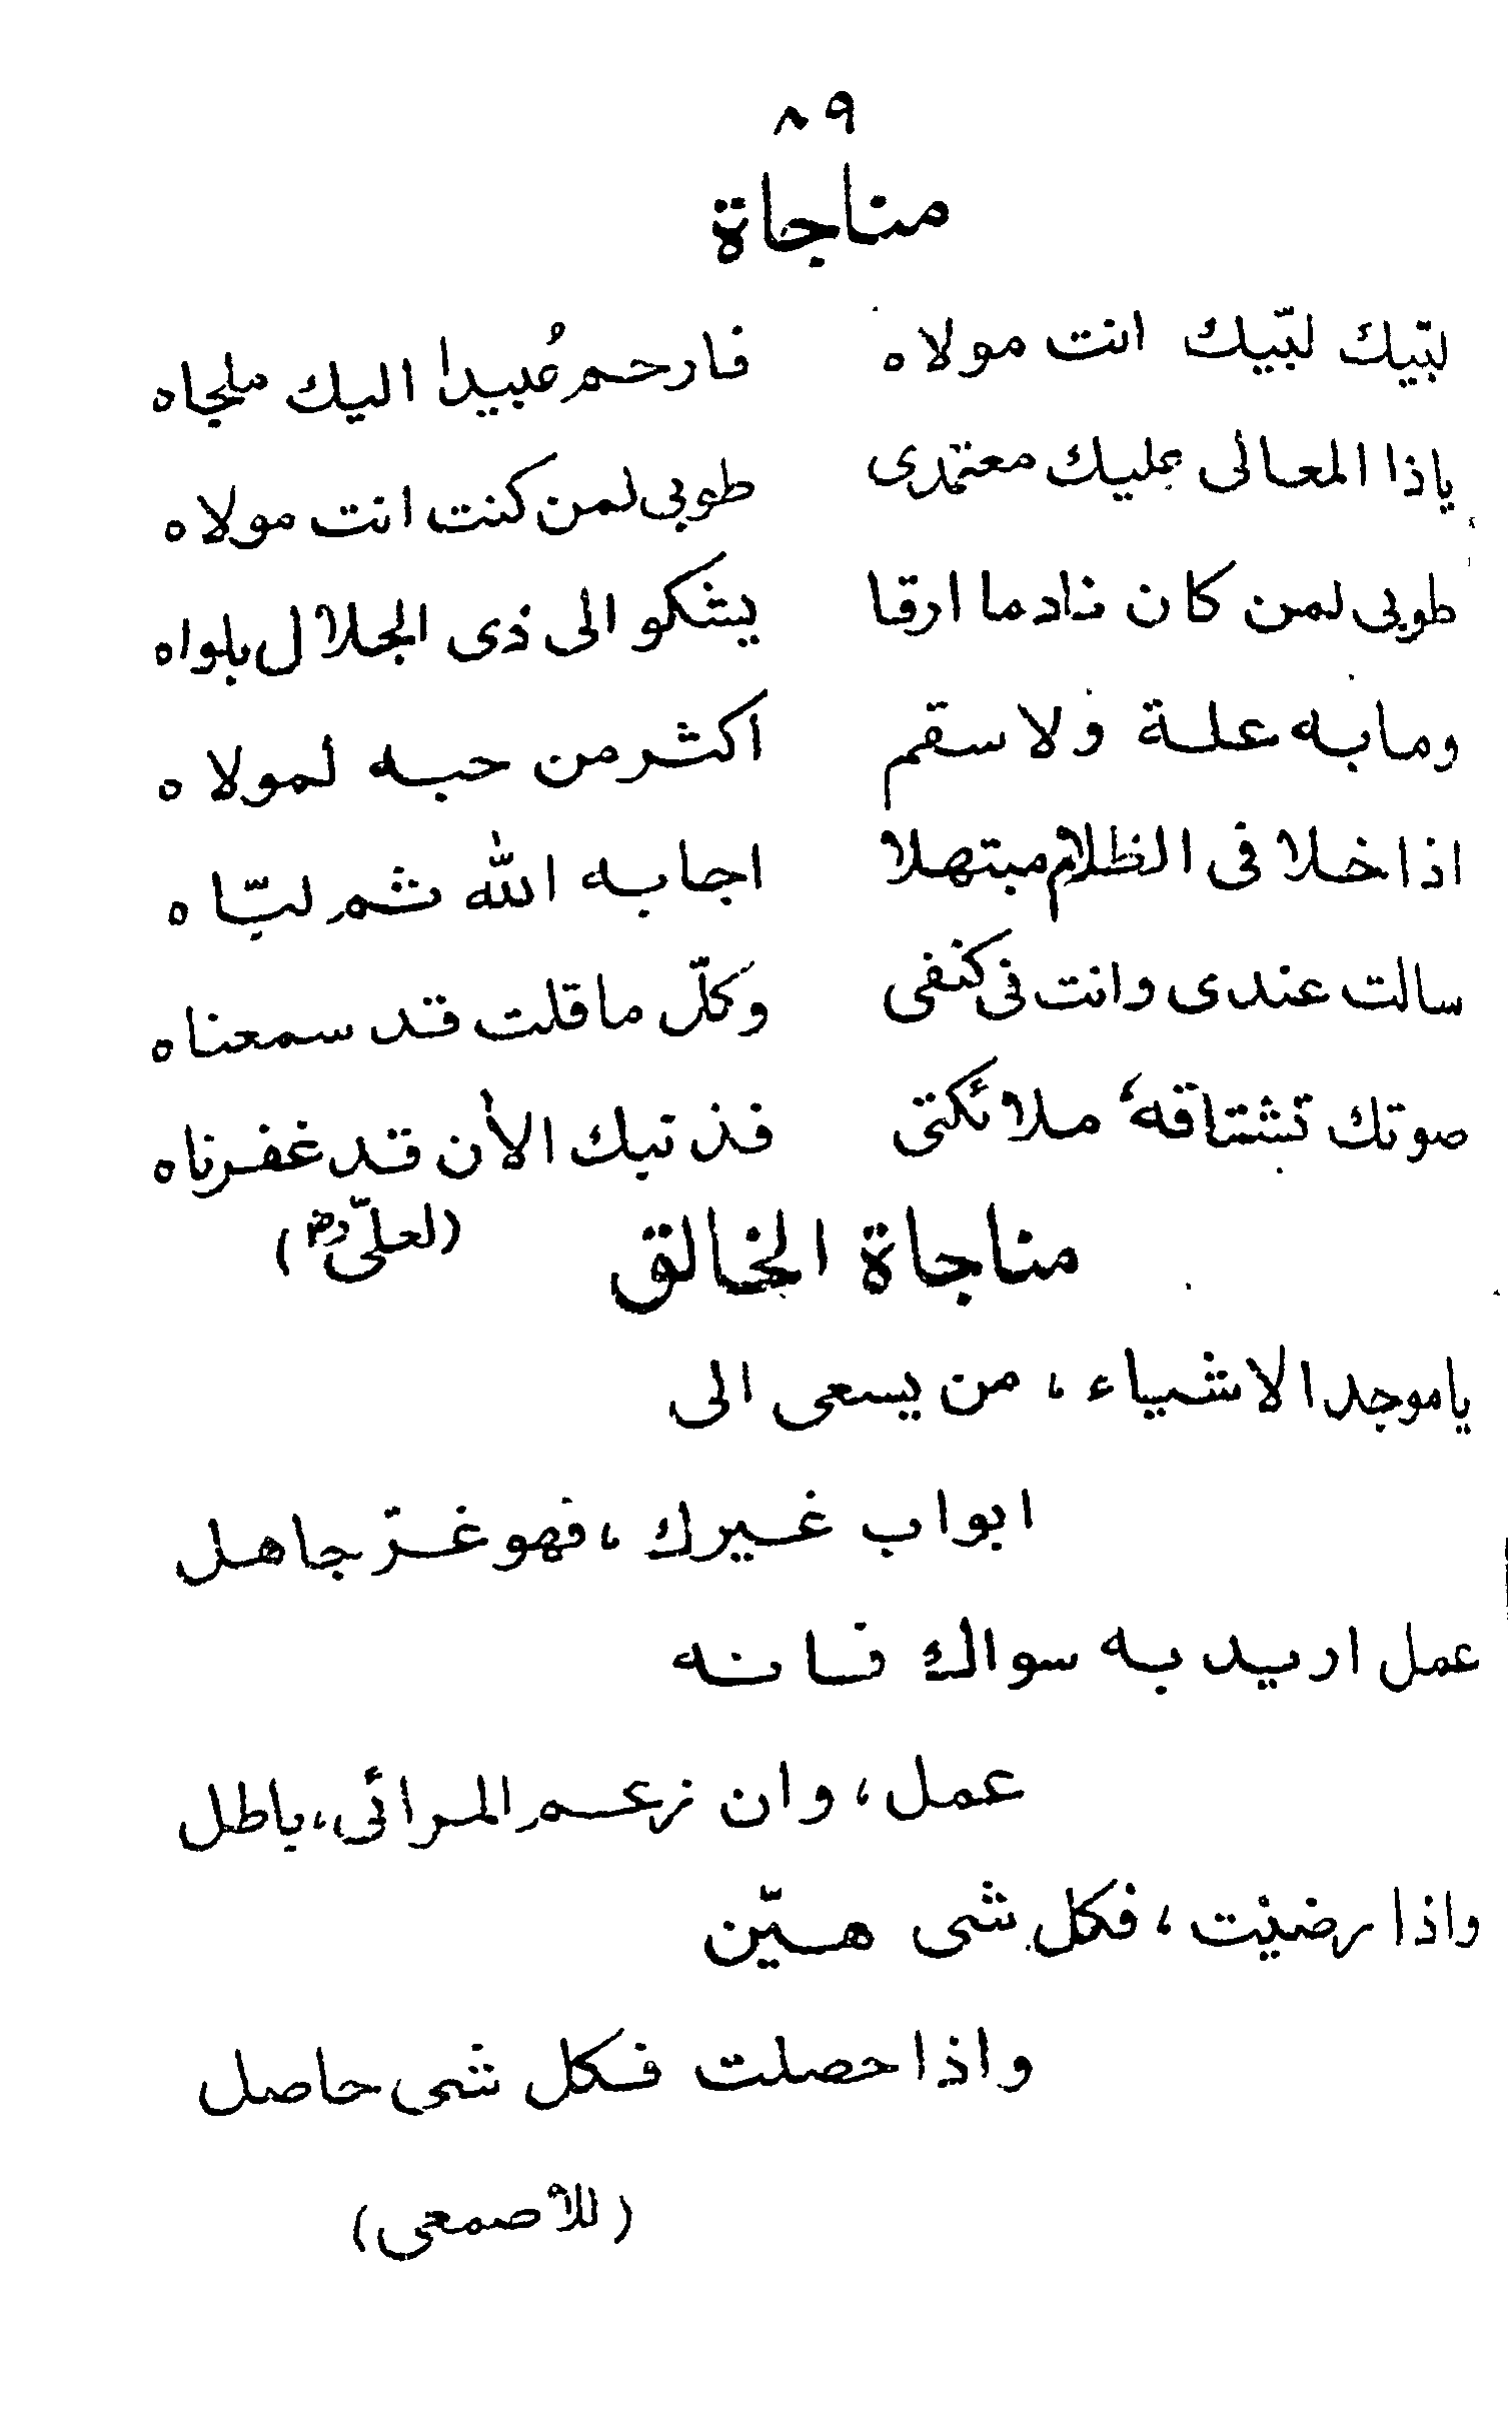 ٨٩
مناجاة
لبّيك لبّيك انت مولاه فارحم عُبيدا اليك ملجاه
ياذا المعالى عليك معتمدى طوبى لمن كنت انت مولاه
طوبى لمن كان نادما ارقا يشكو الى ذى الجلال بلواه
ومابه علة ولا سقم اكثر من حبه لمولاه
اذا خلا فى الظلام مبتهلا اجابه الله ثم لبّاه
سالت عندى وانت فى كنفى وكلّ ما قلت قد سمعناه
صوتك تشتاقه ملائكتى فذنبك الأن قد غفرناه
مناجاة الخالق (لعلىّ رض)
ياموجد الاشياء، من يسعى الى
ابواب غيرك، فهو غرّ جاهل
عمل اريد به سواك فانه
عمل، وان زعم المرائى، باطل
واذا رضيت، فكل شى هيّن
واذا حصلت فكل شى حاصل
(للأصمعى)